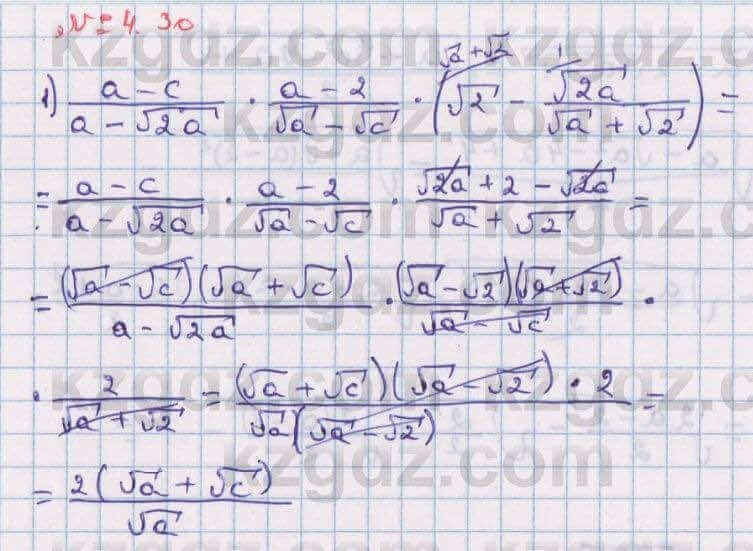 № 4.30
1) (a - c)/(a - √2a) · (a - 2)/(√a - √c) · (√2 - √2a/(√a + √2)) = √a + √2 1
= (a - c)/(a - √2a) · (a - 2)/(√a - √c) · (√2a + 2 - √2a)/(√a + √2) =
= (√a - √c)(√a + √c)/(a - √2a) · (√a - √2)(√a + √2)/(√a - √c) ·
· 2/(√a + √2) = (√a + √c)(√a - √2) · 2/(√a(√a - √2)) =
= 2(√a + √c)/√a
kzgdz.com